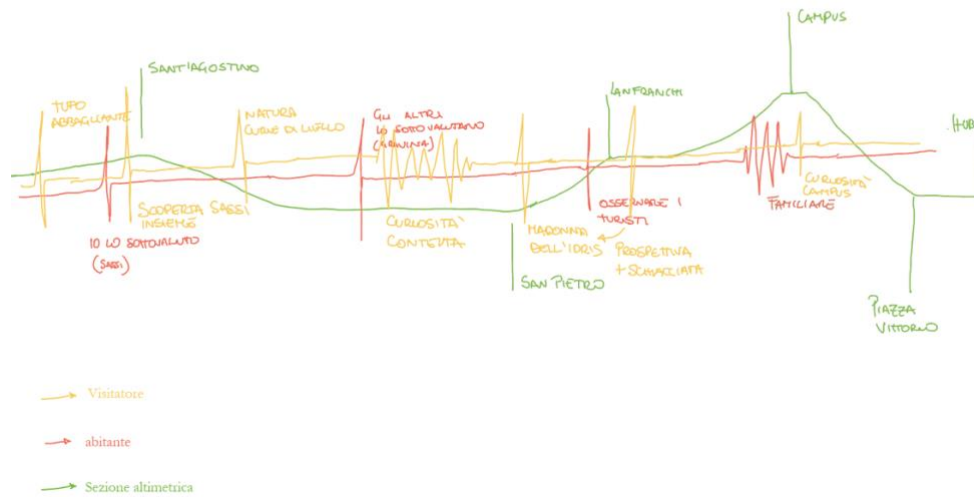 CAMPUS
SANT'AGOSTINO
TUFO
ABBAGLIANTE
NATURA
CURVE DI LIVELLO
GLI ALTRI
LO SOTTOVALUTANO
LANFRANCHI
SCOPERTA SASSI
INSIEME
IO LO SOTTOVALUTO
(SASSI)
CURIOSITÀ
CONTENTA
MADONNA
DELL'IDRIS
SAN PIETRO
OSSERVARE I
TURISTI
PROSPETTIVA
+ SCHIACCIATA
CURIOSITÀ
CAMPUS
FAMILIARE
PIAZZA
VITTORIO
Visitatore
abitante
Sezione altimetrica